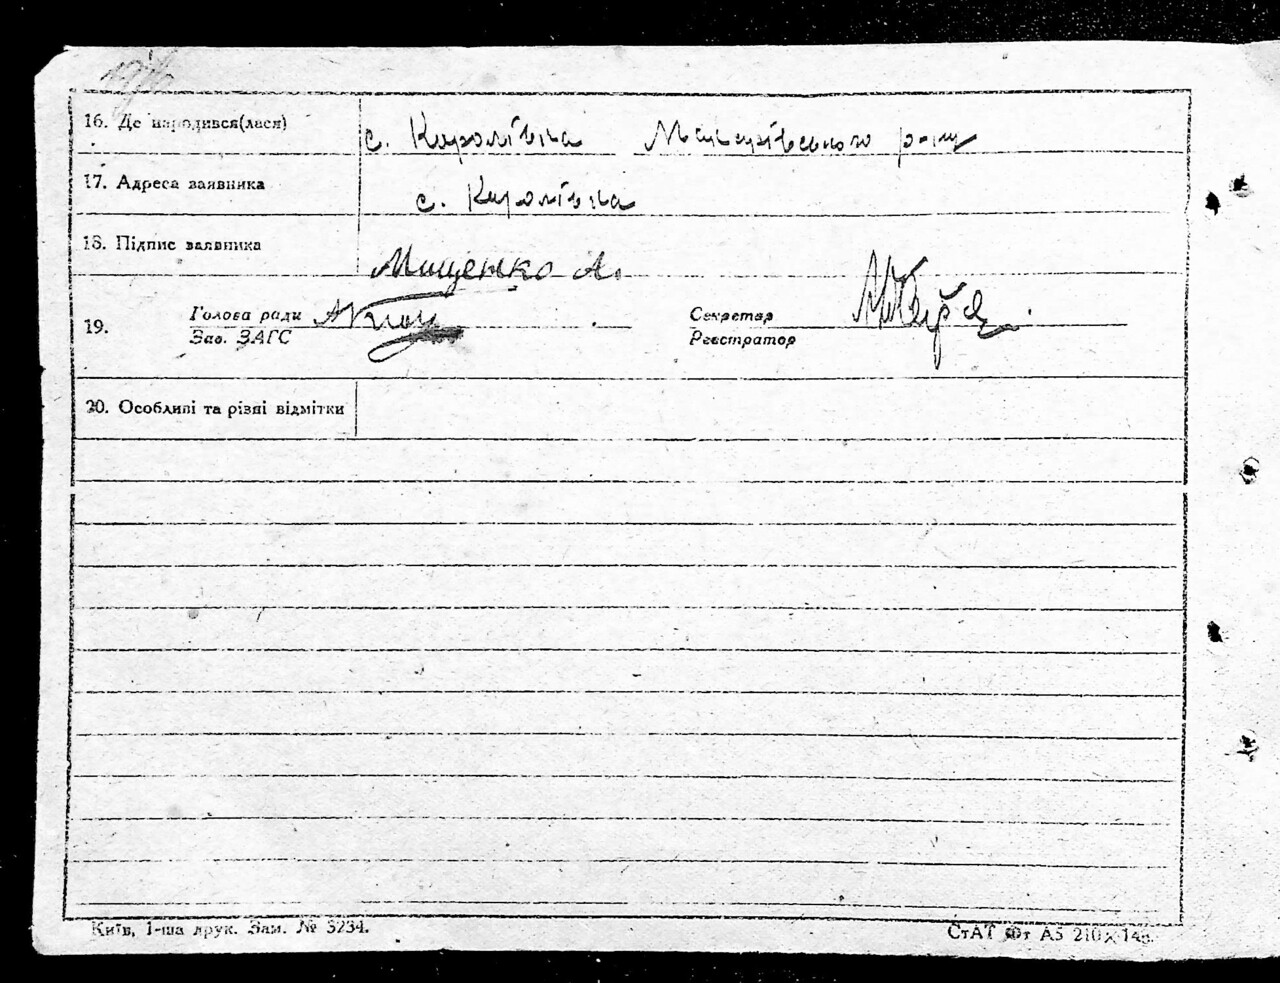 16. Де народився(лася) с. Королівка Макарівського р-ну
17. Адреса заявника с. Королівка
18. Підпис заявника Мищенко А.
19. Голова ради Секретар
Зав. ЗАГС Реєстратор
20. Особливі та різні відмітки
Київ, 1-ша друк. Зам. № 3234.
СтАТ Фт А5 210х148.